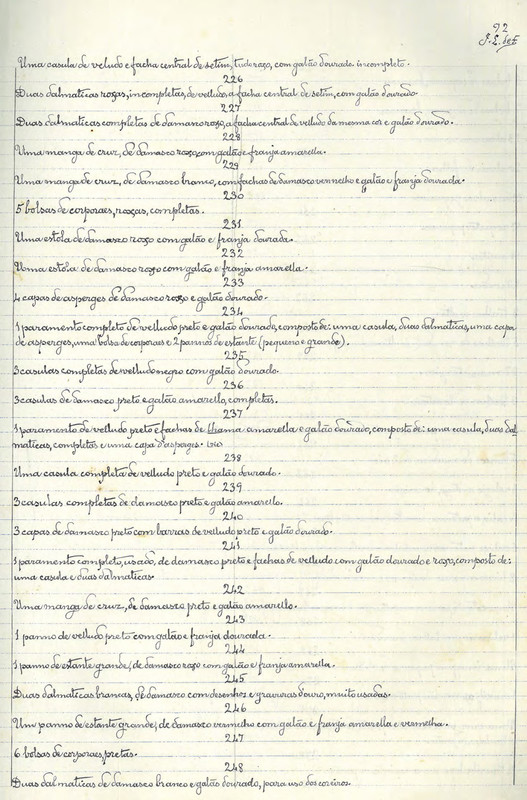 92
Uma casula de veludo e facha central de setim, tudo roxo, com galão dourado incompleto.
226
Duas dalmaticas roxas, incompletas, de veludo, a facha central de setim, com galão dourado.
227
Duas dalmaticas completas de damasco roxo, a facha central de velludo da mesma cor e galão dourado.
228
Uma manga de cruz, de damasco roxo, com galão e franja amarella.
229
Uma manga de cruz, de damasco branco, com fachas de damasco vermelho e galão e franja dourada.
230
5 bolsas de corporaes, roxas, completas.
231
Uma estola de damasco roxo com galão e franja dourada.
232
Uma estola de damasco roxo com galão e franja amarella.
233
4 capas de asperges de damasco roxo e galão dourado.
234
1 paramento completo de velludo preto e galão dourado, composto de: uma casula, duas dalmaticas, uma capa
de asperges, uma bolsa de corporaes e 2 pannos de estante (pequeno e grande).
235
3 casulas completas de velludo negro com galão dourado.
236
3 casulas de damasco preto e galão amarello, completas.
237
1 paramento de velludo preto e fachas de lhama amarella e galão dourado, composto de: uma casula, duas dal-
maticas, completas e uma capa d'asperges.
238
Uma casula completa de velludo preto e galão dourado.
239
3 casulas completas de damasco preto e galão amarello.
240
3 capas de damasco preto com barras de velludo preto e galão dourado.
241
1 paramento completo, usado, de damasco preto e fachas de velludo com galão dourado e roxo, composto de:
uma casula e duas dalmaticas.
242
Uma manga de cruz, de damasco preto e galão amarello.
243
1 panno de velludo preto com galão e franja dourada.
244
1 panno de estante grande, de damasco roxo com galão e franja amarella.
245
Duas dalmaticas brancas, de damasco com desenhos e gravuras d'ouro, muito usadas.
246
Um panno de estante grande, de damasco vermelho com galão e franja amarella e vermelha.
247
6 bolsas de corporaes, pretas.
248
Duas dalmaticas de damasco branco e galão dourado, para uso dos coreiros.